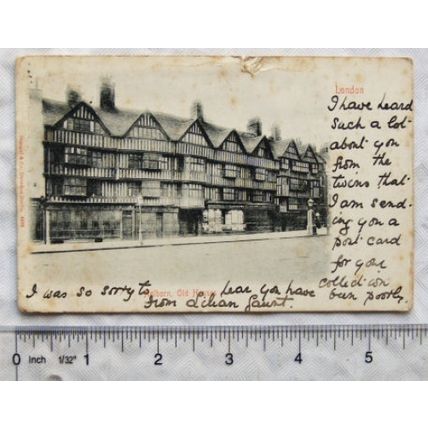 London
I have heard
such a lot
about you
from the
twins that
I am send-
ing you a
post card
for your
collect'on
I was so sorry to hear you have been poorly.
from
Holborn, Old Houses
0 Inch 1/32" 1 2 3 4 5